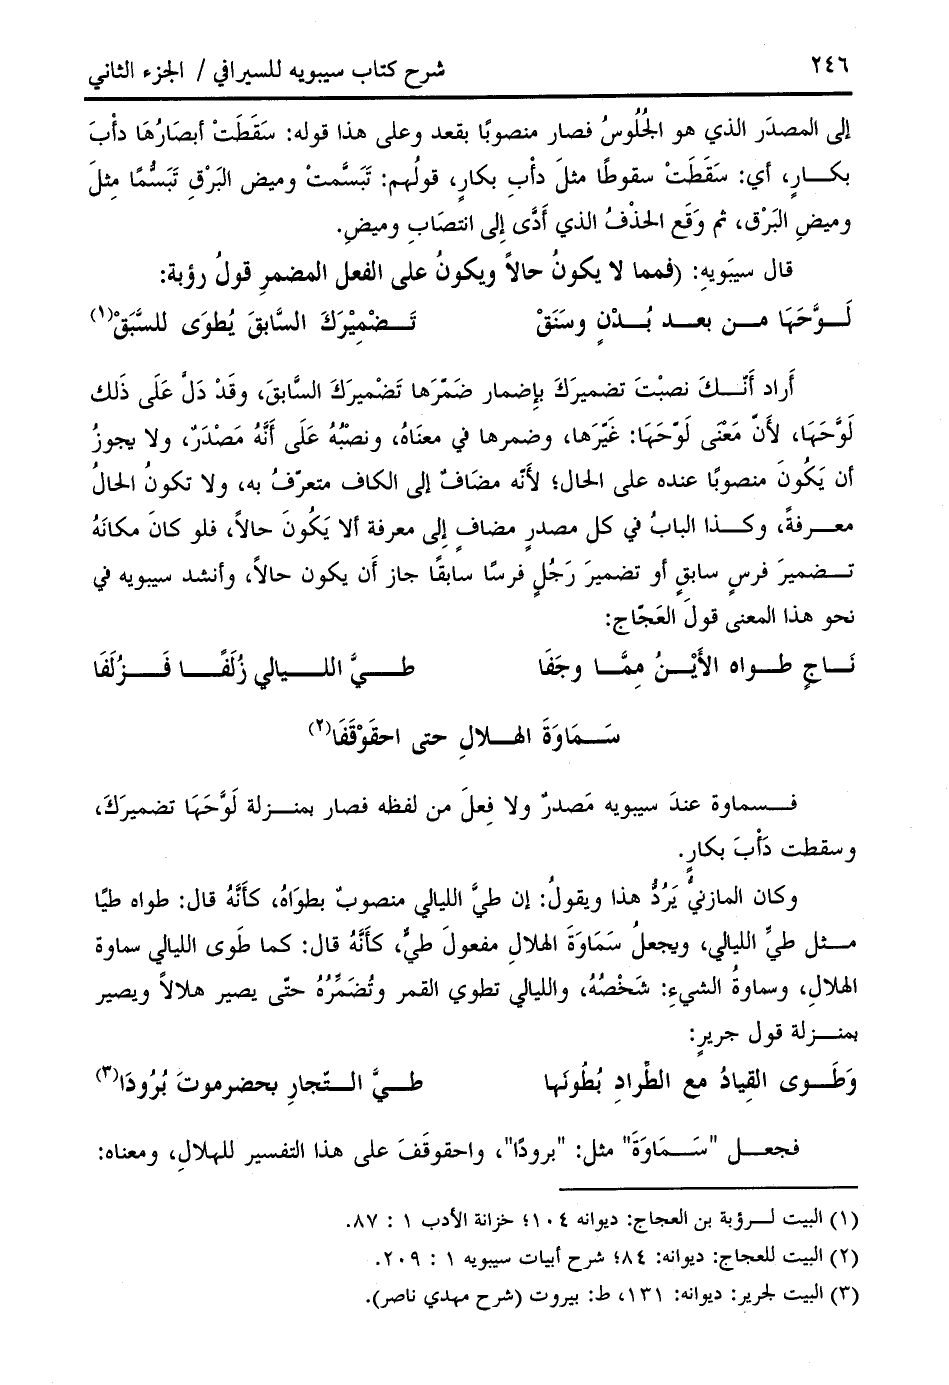 ٢٤٦
شرح كتاب سيبويه للسيرافي / الجزء الثاني
إلى المصدَر الذي هو الجُلُوسُ فصار منصوبًا بقعد وعلى هذا قوله: سَقَطَتْ أبصَارُهَا دأْبَ
بكــارٍ، أي: سَقَطَتْ سقوطًا مثلَ دأْبِ بكارٍ، قولُهم: تَبَسَّمتْ وميض البَرْقِ تَبَسُّمًا مِثلَ
وميضِ البَرْق، ثم وَقَع الحذْفُ الذي أدَّى إلى انتصَابِ وميضٍ.
قال سيبَويهِ: (فمما لا يكونُ حالاً ويكونُ على الفعل المضمرِ قولُ رؤبة:
لَـوَّحَهَا مــن بعــد بُــدْنٍ وسَنَقْ تَــضْمِيْرَكَ السَّابقَ يُطوَى للسَّبَقْ(١)
أراد أَنَّــكَ نصبْتَ تضميرَكَ بإضمار ضَمَّرَها تَضْميرَكَ السَّابقَ، وقَدْ دَلَّ عَلَى ذَلك
لَوَّحَهَا، لأنّ مَعْنَى لَوّحَهَا: غَيَّرَها، وضمرها في معنَاهُ، ونصبُهُ عَلَى أَنَّهُ مَصْدَرٌ، ولا يجوزُ
أن يَكُونَ منصوبًا عنده على الحال؛ لأنّه مضَافٌ إلى الكاف متعرّفٌ به، ولا تكونُ الحالُ
معــرفةً، وكــذا البابُ في كل مصدرٍ مضافٍ إلى معرفة ألا يَكُونَ حالاً، فلو كانَ مكانَهُ
تــضميرَ فرسٍ سابقٍ أو تضميرَ رَجُلٍ فرسًا سابقًا جاز أَن يكون حالاً، وأنشد سيبويه في
نحو هذا المعنى قولَ العَجّاج:
نَــاجٍ طــواه الأَيْــنُ مِمَّــا وجَفَا طــيَّ اللــيالي زُلَفًــا فَــزُلَفَا
سَــمَاوَةَ الهــلالِ حتى احقَوْقَفَا(٢)
فــسماوة عندَ سيبويه مَصدرٌ ولا فعلَ من لفظه فصار بمنــزلة لَوَّحَهَا تضميرَكَ،
وسقطت دَأْبَ بكارٍ.
وكان المازنيُّ يَرُدُّ هذا ويقولُ: إن طيَّ الليالي منصوبٌ بطوَاهُ، كأَنَّهُ قال: طواه طيًا
مــثل طيِّ الليالي، ويجعلُ سَمَاوَةَ الهلال مفعولَ طيٍّ، كأنَّهُ قال: كما طَوى الليالي سماوة
الهلالِ، وسماوةُ الشيءِ: شَخْصُهُ، والليالي تطوي القمر وتُضَمِّرُهُ حتّى يصير هلالاً ويصير
بمنــزلة قول جريرٍ:
وَطَــوى القِيادُ مع الطّرادِ بُطُونَها طــيَّ الــتّجارِ بحضرموتَ بُرُودَا(٣)
فجعــل "سَــمَاوَةَ" مثل: "برودًا"، واحقوقَفَ على هذا التفسير للهلالِ، ومعناه:
(١) البيت لــرؤبة بن العجاج: ديوانه ١٠٤؛ خزانة الأدب ١ : ٨٧.
(٢) البيت للعجاج: ديوانه: ٨٤؛ شرح أبيات سيبويه ١ : ٢٠٩.
(٣) البيت لجرير: ديوانه: ١٣١، ط: بيروت (شرح مهدي ناصر).